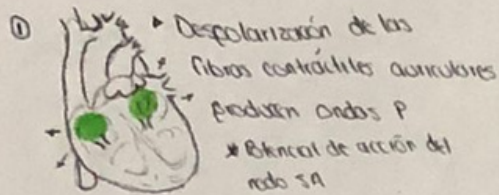 ①
• Despolarización de las
fibras contráctiles auriculares
producen ondas P
* Potencial de acción del
nodo SA